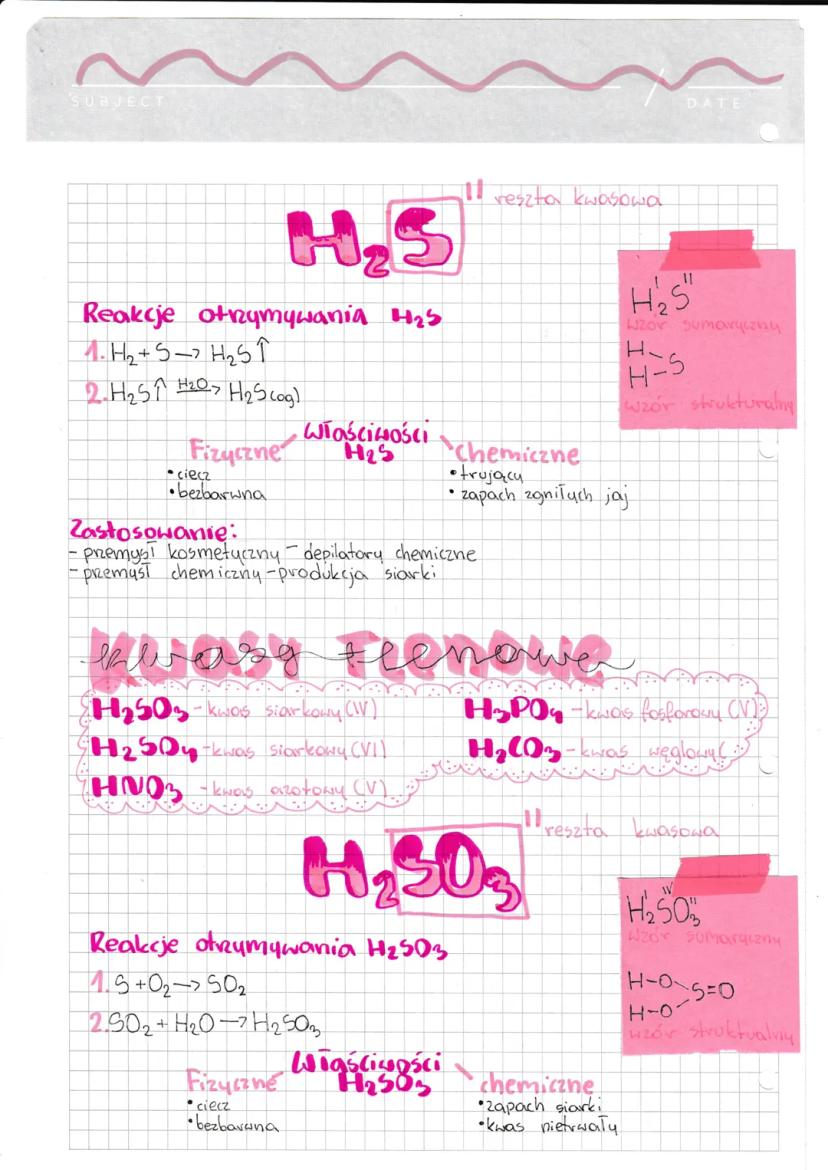 SUBJECT / DATE
H₂S
II reszta kwasowa
H₂ᴵSᴵᴵ
wzór sumaryczny
H
H-S
wzór strukturalny
Reakcje otrzymywania H₂S
1. H₂ + S → H₂S↑
2. H₂S↑ H₂O→ H₂S(aq)
Właściwości
H₂S
Fizyczne
• ciecz
• bezbarwna
Chemiczne
• trujący
• zapach zgniłych jaj
Zastosowanie:
- przemysł kosmetyczny - depilatory chemiczne
- przemysł chemiczny - produkcja siarki
kwasy tlenowe
H₂SO₃ - kwas siarkowy (IV)
H₂SO₄ - kwas siarkowy (VI)
HNO₃ - kwas azotowy (V)
H₃PO₄ - kwas fosforowy (V)
H₂CO₃ - kwas węglowy (
H₂SO₃
II reszta kwasowa
H₂ᴵSᴵⱽO₃ᴵᴵ
wzór sumaryczny
H-O
S=O
H-O
wzór struktualny
Reakcje otrzymywania H₂SO₃
1. S + O₂ → SO₂
2. SO₂ + H₂O → H₂SO₃
Właściwości
H₂SO₃
Fizyczne
• ciecz
• bezbarwna
chemiczne
• zapach siarki
• kwas nietrwały